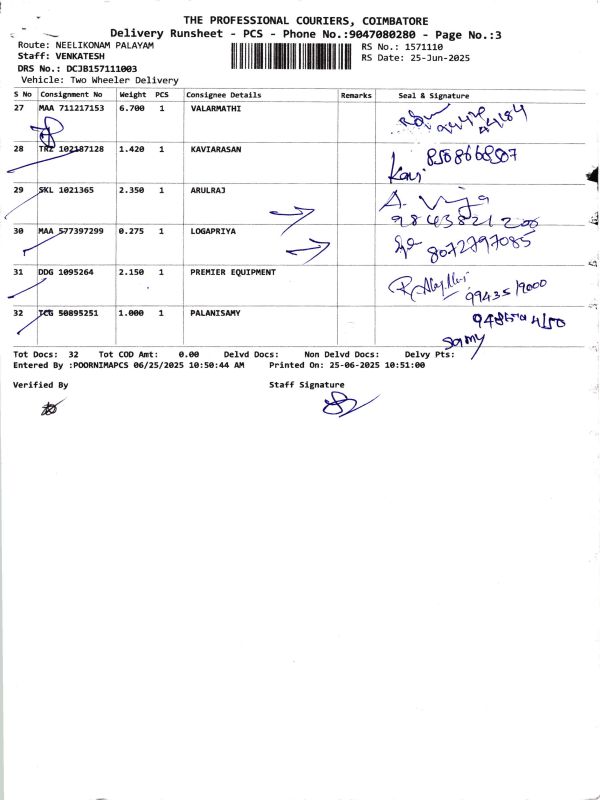 THE PROFESSIONAL COURIERS, COIMBATORE
Delivery Runsheet - PCS - Phone No.:9047080280 - Page No.:3
Route: NEELIKONAM PALAYAM RS No.: 1571110
Staff: VENKATESH RS Date: 25-Jun-2025
DRS No.: DCJB157111003
Vehicle: Two Wheeler Delivery
S No Consignment No Weight PCS Consignee Details Remarks Seal & Signature
27 MAA 711217153 6.700 1 VALARMATHI
28 TRZ 102187128 1.420 1 KAVIARASAN
Kavi
29 SKL 1021365 2.350 1 ARULRAJ
30 MAA 577397299 0.275 1 LOGAPRIYA
8072797085
31 DDG 1095264 2.150 1 PREMIER EQUIPMENT
32 TCG 50895251 1.000 1 PALANISAMY
Samy
Tot Docs: 32 Tot COD Amt: 0.00 Delvd Docs: Non Delvd Docs: Delvy Pts:
Entered By :POORNIMAPCS 06/25/2025 10:50:44 AM Printed On: 25-06-2025 10:51:00
Verified By Staff Signature